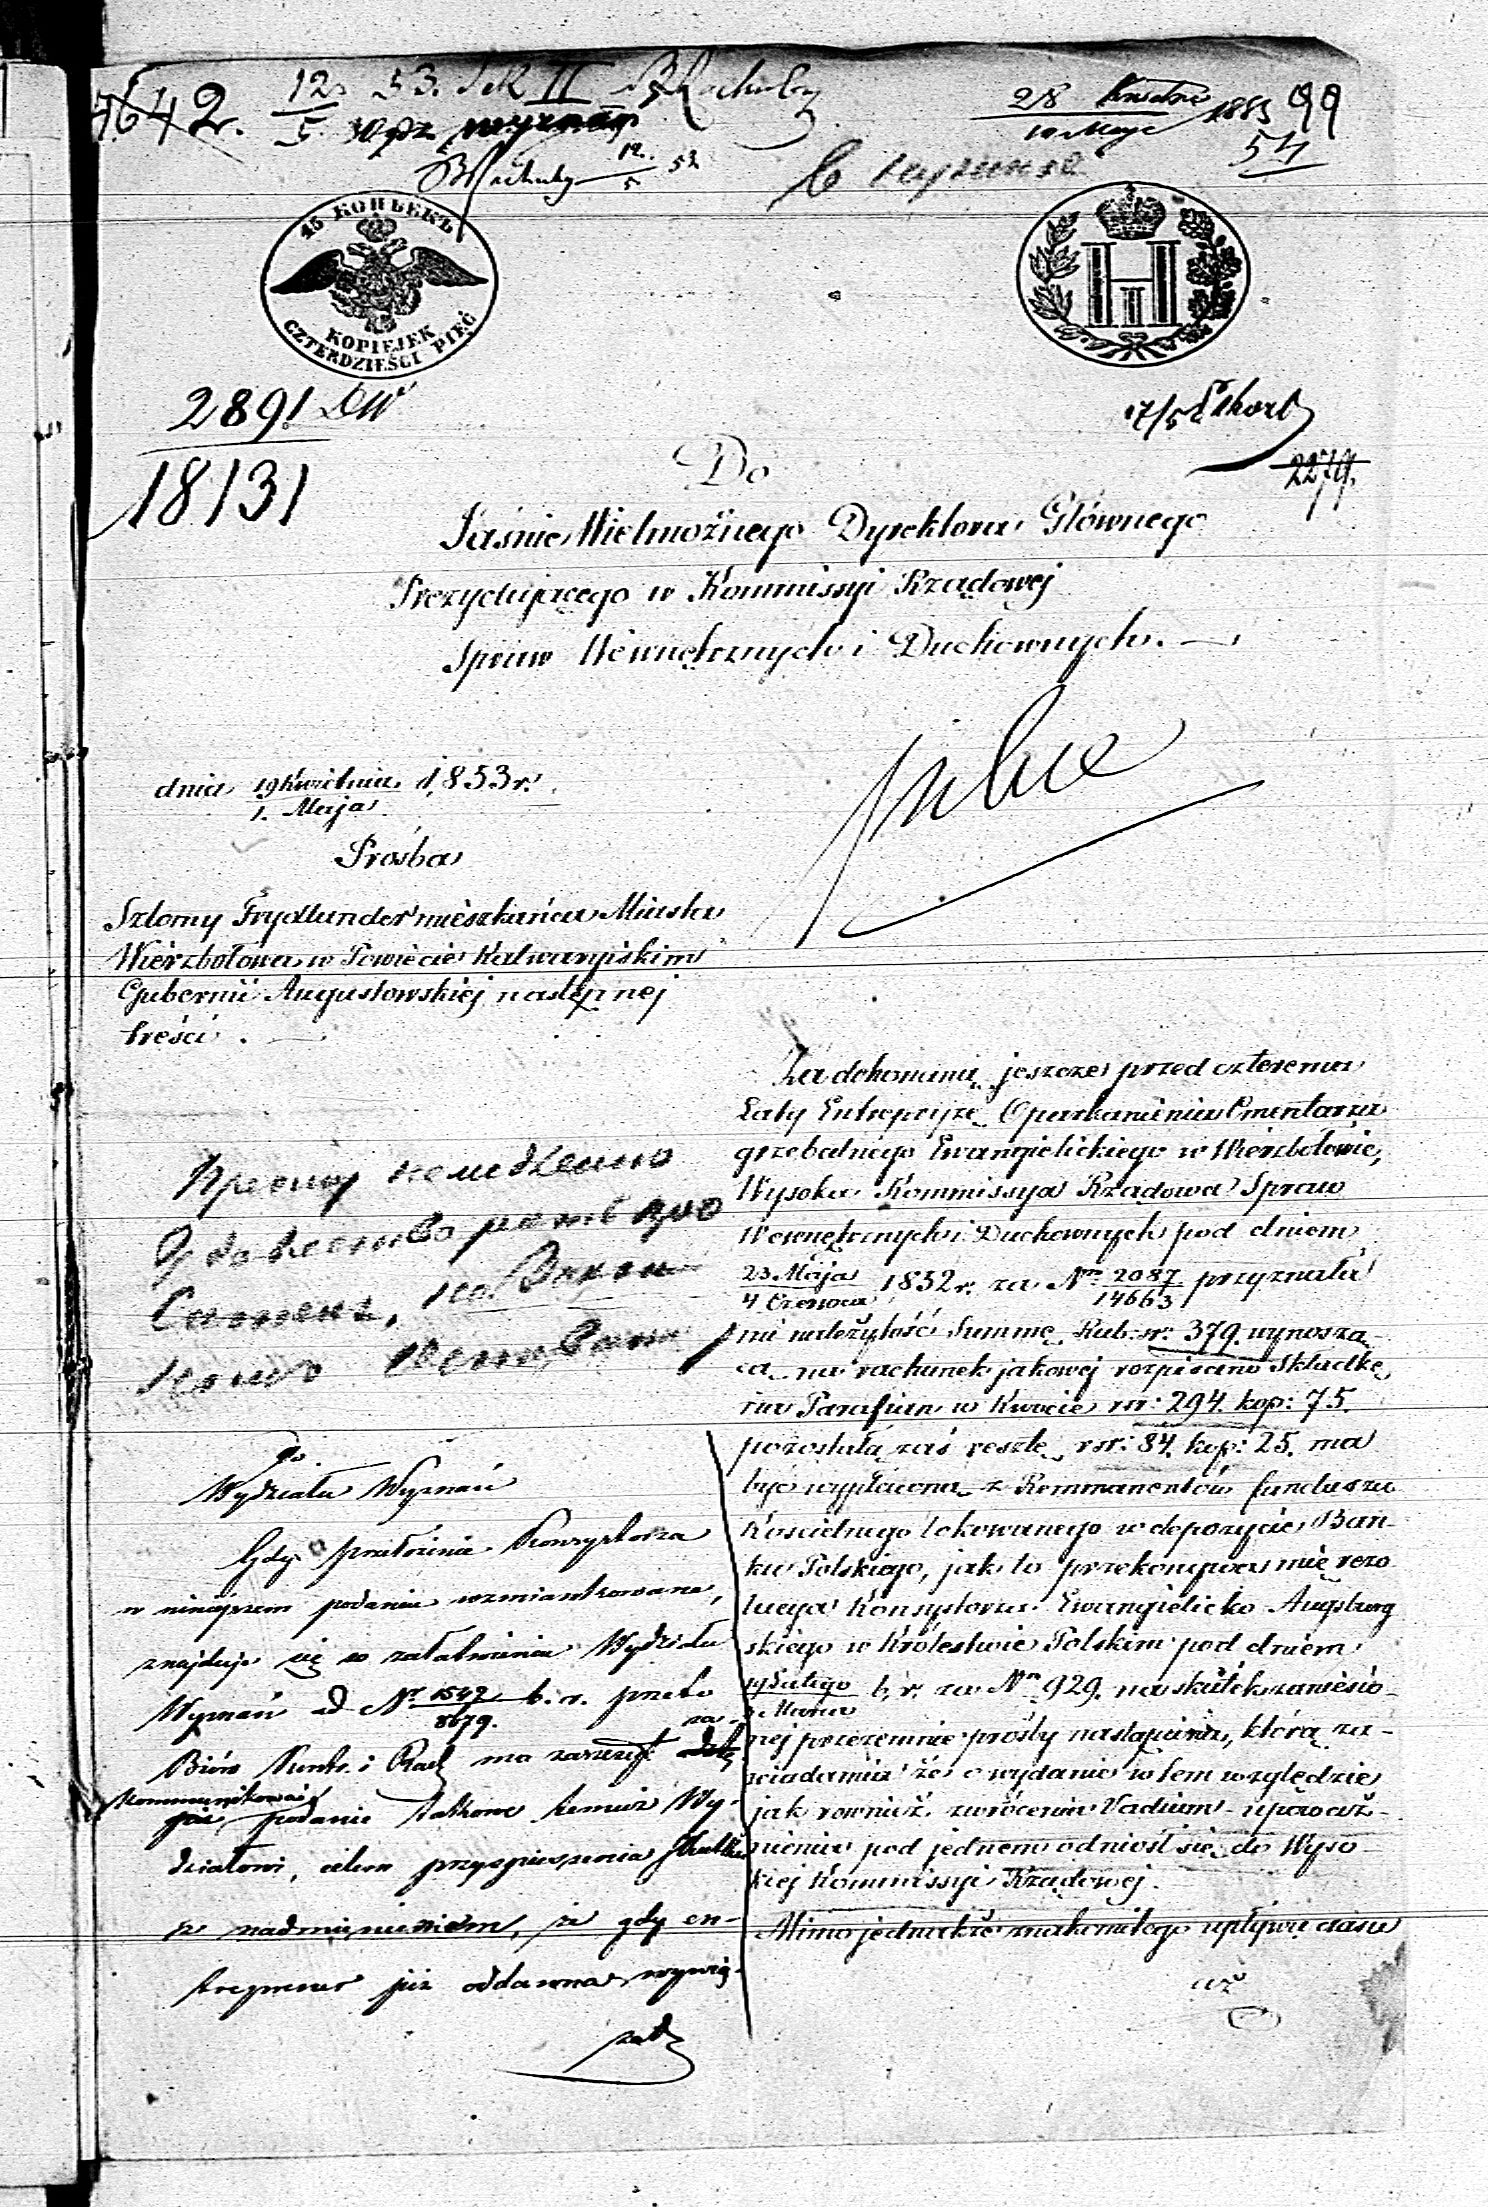 7642.
12/5 53. Sek II
28 Kwietnia / 10 Maja 1853
99
54
12/5 53
45 КОПѢЕКЪ
KOPIEJEK
CZTERDZIEŚCI PIĘĆ
2891 DW
18131
17/5
2279.
Do
Jaśnie Wielmożnego Dyrektora Głównego
Prezydującego w Kommissyi Rządowej
Spraw Wewnętrznych i Duchownych.
dnia 19 Kwietnia / 1. Maja 1853 r.
Prośba
Szlomy Frydlander mieszkańca Miasta
Wierzbołowa w Powiecie Kalwaryiskim
Gubernii Augustowskiej następnej
treści.
Za dokonaną jeszcze przed czterema
Laty Entrepryzę Oparkanienia Cmentarza
grzebalnego Ewangielickiego w Wierzbołowie,
Wysoka Kommissya Rządowa Spraw
Wewnętrznych i Duchownych pod dniem
23 Maja / 4 Czerwca 1852 r. za Nr. 2087 / 14663 przyznała
mi należytość Summę Rub. sr: 379 wynoszą-
cą na rachunek jakowej rozpisano Składkę
na Parafian w Kwocie rsr: 294. kop: 75.
pozostałą zaś resztę rsr: 84. kop: 25. ma
być wypłacona z Remmanentów funduszu
Kościelnego lokowanego w depozycie Ban-
ku Polskiego, jak to przekonywa mię rezo
lucya Konsystorza Ewangielicko Augsburg
skiego w Królestwie Polskim pod dniem
19 Lutego / 3 Marca b. r. za Nr. 929. na skutek zaniesio-
nej przezemnie prośby nastąpiona, którą za-
wiadamia że o wydanie w tem względzie
jak również zwrócenia Vadium upoważ-
nienia pod jednem odniósł się do Wyso-
kiej Kommissyi Rządowej.
Mimo jednakże znakomitego upływu czasu
aż
Прошу немедленно
удовлетворить
do
Wydziału Wyznań
Gdy przełożenie Konsystorza
w niniejszem podaniu wzmiankowane,
znajduje się w załatwieniu Wydziału
Wyznań ad Nr 1547 / 8679. b. r. przeto
Biuro Kontr. i Rach ma zaszczyt
kommunikować
podanie takowe temuż Wy-
działowi, celem przyspieszenia skutku
z nadmienieniem, że gdy en-
trepreneur już oddawna wywią-
zał